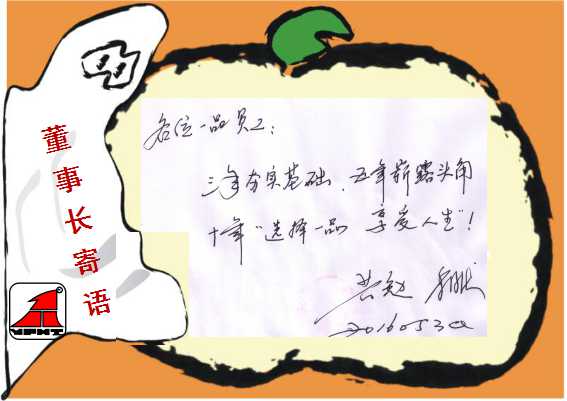 董事长寄语
各位一品员工：
三年夯实基础，五年崭露头角
十年“选择一品 享受人生”！
共勉
20160530
YPHT